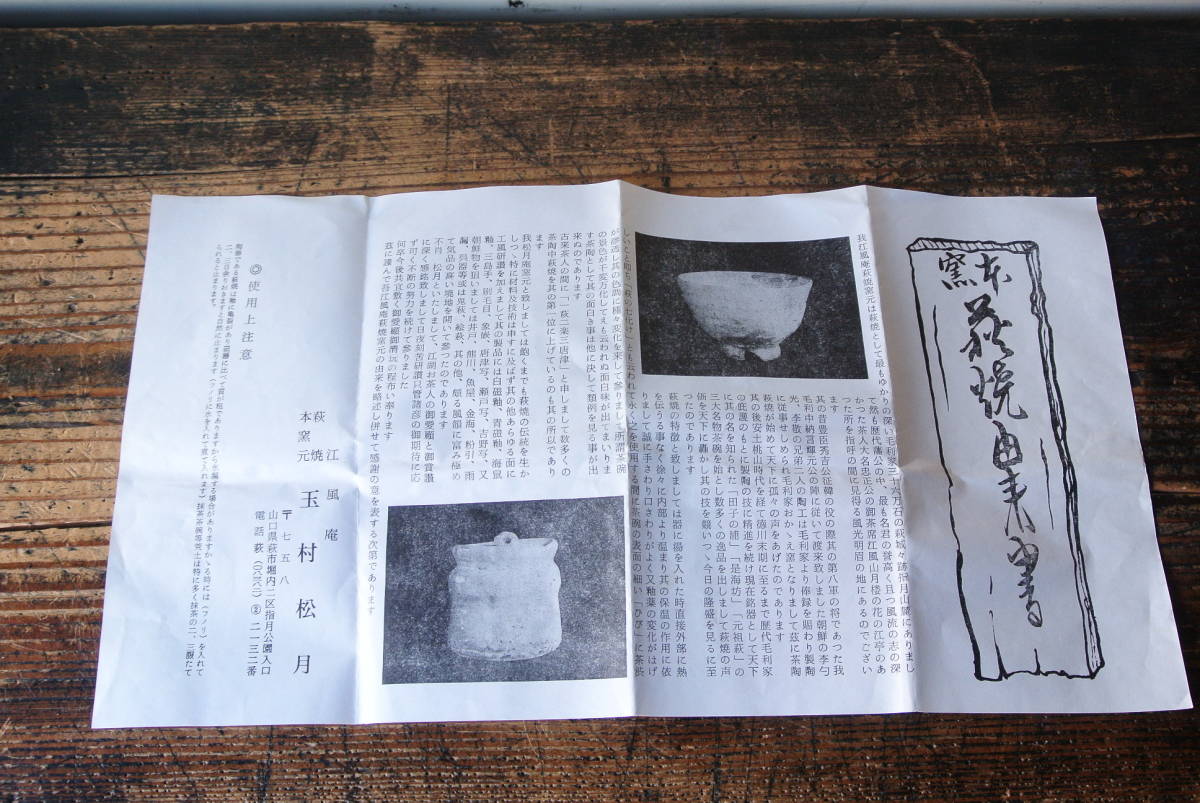 本窯
萩焼由来書
我江風庵萩焼窯元は萩焼として最もゆかりの深い毛利家三十六万石の萩城々跡指月山麓にありまし
て然も歴代藩公の中、最も名君の誉高く且つ風流の志の深
かつた茶人大名忠正公の御茶席江風山月楼の花の江亭のあ
つた所を指呼の間に見得る風光明眉の地にあるのでござい
ます
其の昔豊臣秀吉公征韓の役の際其の第八軍の将であつた我
毛利中納言輝元公の陣に従いて渡来致しました朝鮮の李勺
光、李敬の兄弟二人の陶工は毛利家より俸録を賜わり製陶
に従事せしめられ毛利家おかゝえ窯となりまして茲に茶陶
萩焼が始めて天下に孤々の声をあげたのであります
其の後安土桃山時代を経て徳川末期に至るまで歴代毛利家
の庇護のもとに製陶の技に精進を続け現在銘器として天下
に其の名を知られた「田子の浦」「是海坊」「元祖萩」の
三大名物茶碗を始めとし数多くの逸品を出しまして萩焼の声
価を天下に轟かし其の技を競いつゝ今日の隆盛を見るに至
つたのであります
萩焼の特徴と致しましては器に湯を入れた時直接外部に熱
を伝る事なく徐々に内部より温まり其の保温の作用に依
りまして誠に手さわり口さわりがよく又釉薬の変化がはげ
しいこと即ち「萩の七化け」とも云われて永く之を使用する間に茶碗の表面の細い「ひび」に茶渋
が滲透し其の色調に種々変化を来して参りまして所謂茶碗
の景色が千変万化してえも云われぬ面白味が出てまいりま
す茶陶として其の面白き事は他に決して類例を見る事が出
来ぬのであります
古来茶人の間に「一萩二楽三唐津」と申しまして数多くの
茶陶中萩焼を其の第一位に上げているのも其の所以であり
ます
我松月庵窯元と致しましては飽くまでも萩焼の伝統を生か
しつゝ特に材料及技術は申すに及ばず其の他あらゆる面に
工風研讃を加えまして其の製品には白磁釉、青磁釉、海鼠
釉、三島手、刷毛目、象嵌、唐津写、瀬戸写、古野写、又
朝鮮物を狙いましては井戸、熊川、魚屋、金海、粉引、雨
漏、呉器等或は鬼萩、絵萩、其の他、頗る風韻に富み極め
て気品の高い境地を開いて参つたのであります
不肖、松月といたしまして、江湖お茶人の御愛顧と御賞讃
に深く感銘致しまして日夜刻苦研讃只管諸彦の御期待に応
ず可く不断の努力を続けて参りました
何卒今後共宜敷く御愛顧御清玩の程布い奉ります
茲に謹んで吾江風庵萩焼窯元の由来を略述し併せて感謝の意を表する次第であります
江風庵
萩焼
本窯元
玉村松月
〒七五八
山口県萩市堀内二区指月公園入口
電話萩(〇八三八二)②二一三二番
◎使用上注意
陶器である萩焼は軸に亀裂があり磁器に比べて質が粗でありますから水漏する場合がありますかゝる時には(フノリ)を入れて
二、三日余りおきますと自然に止まります。(フノリに水を入れて煮て入れます)抹茶茶碗等荒土は特に多く抹茶の二、三服たて
られると止まります。